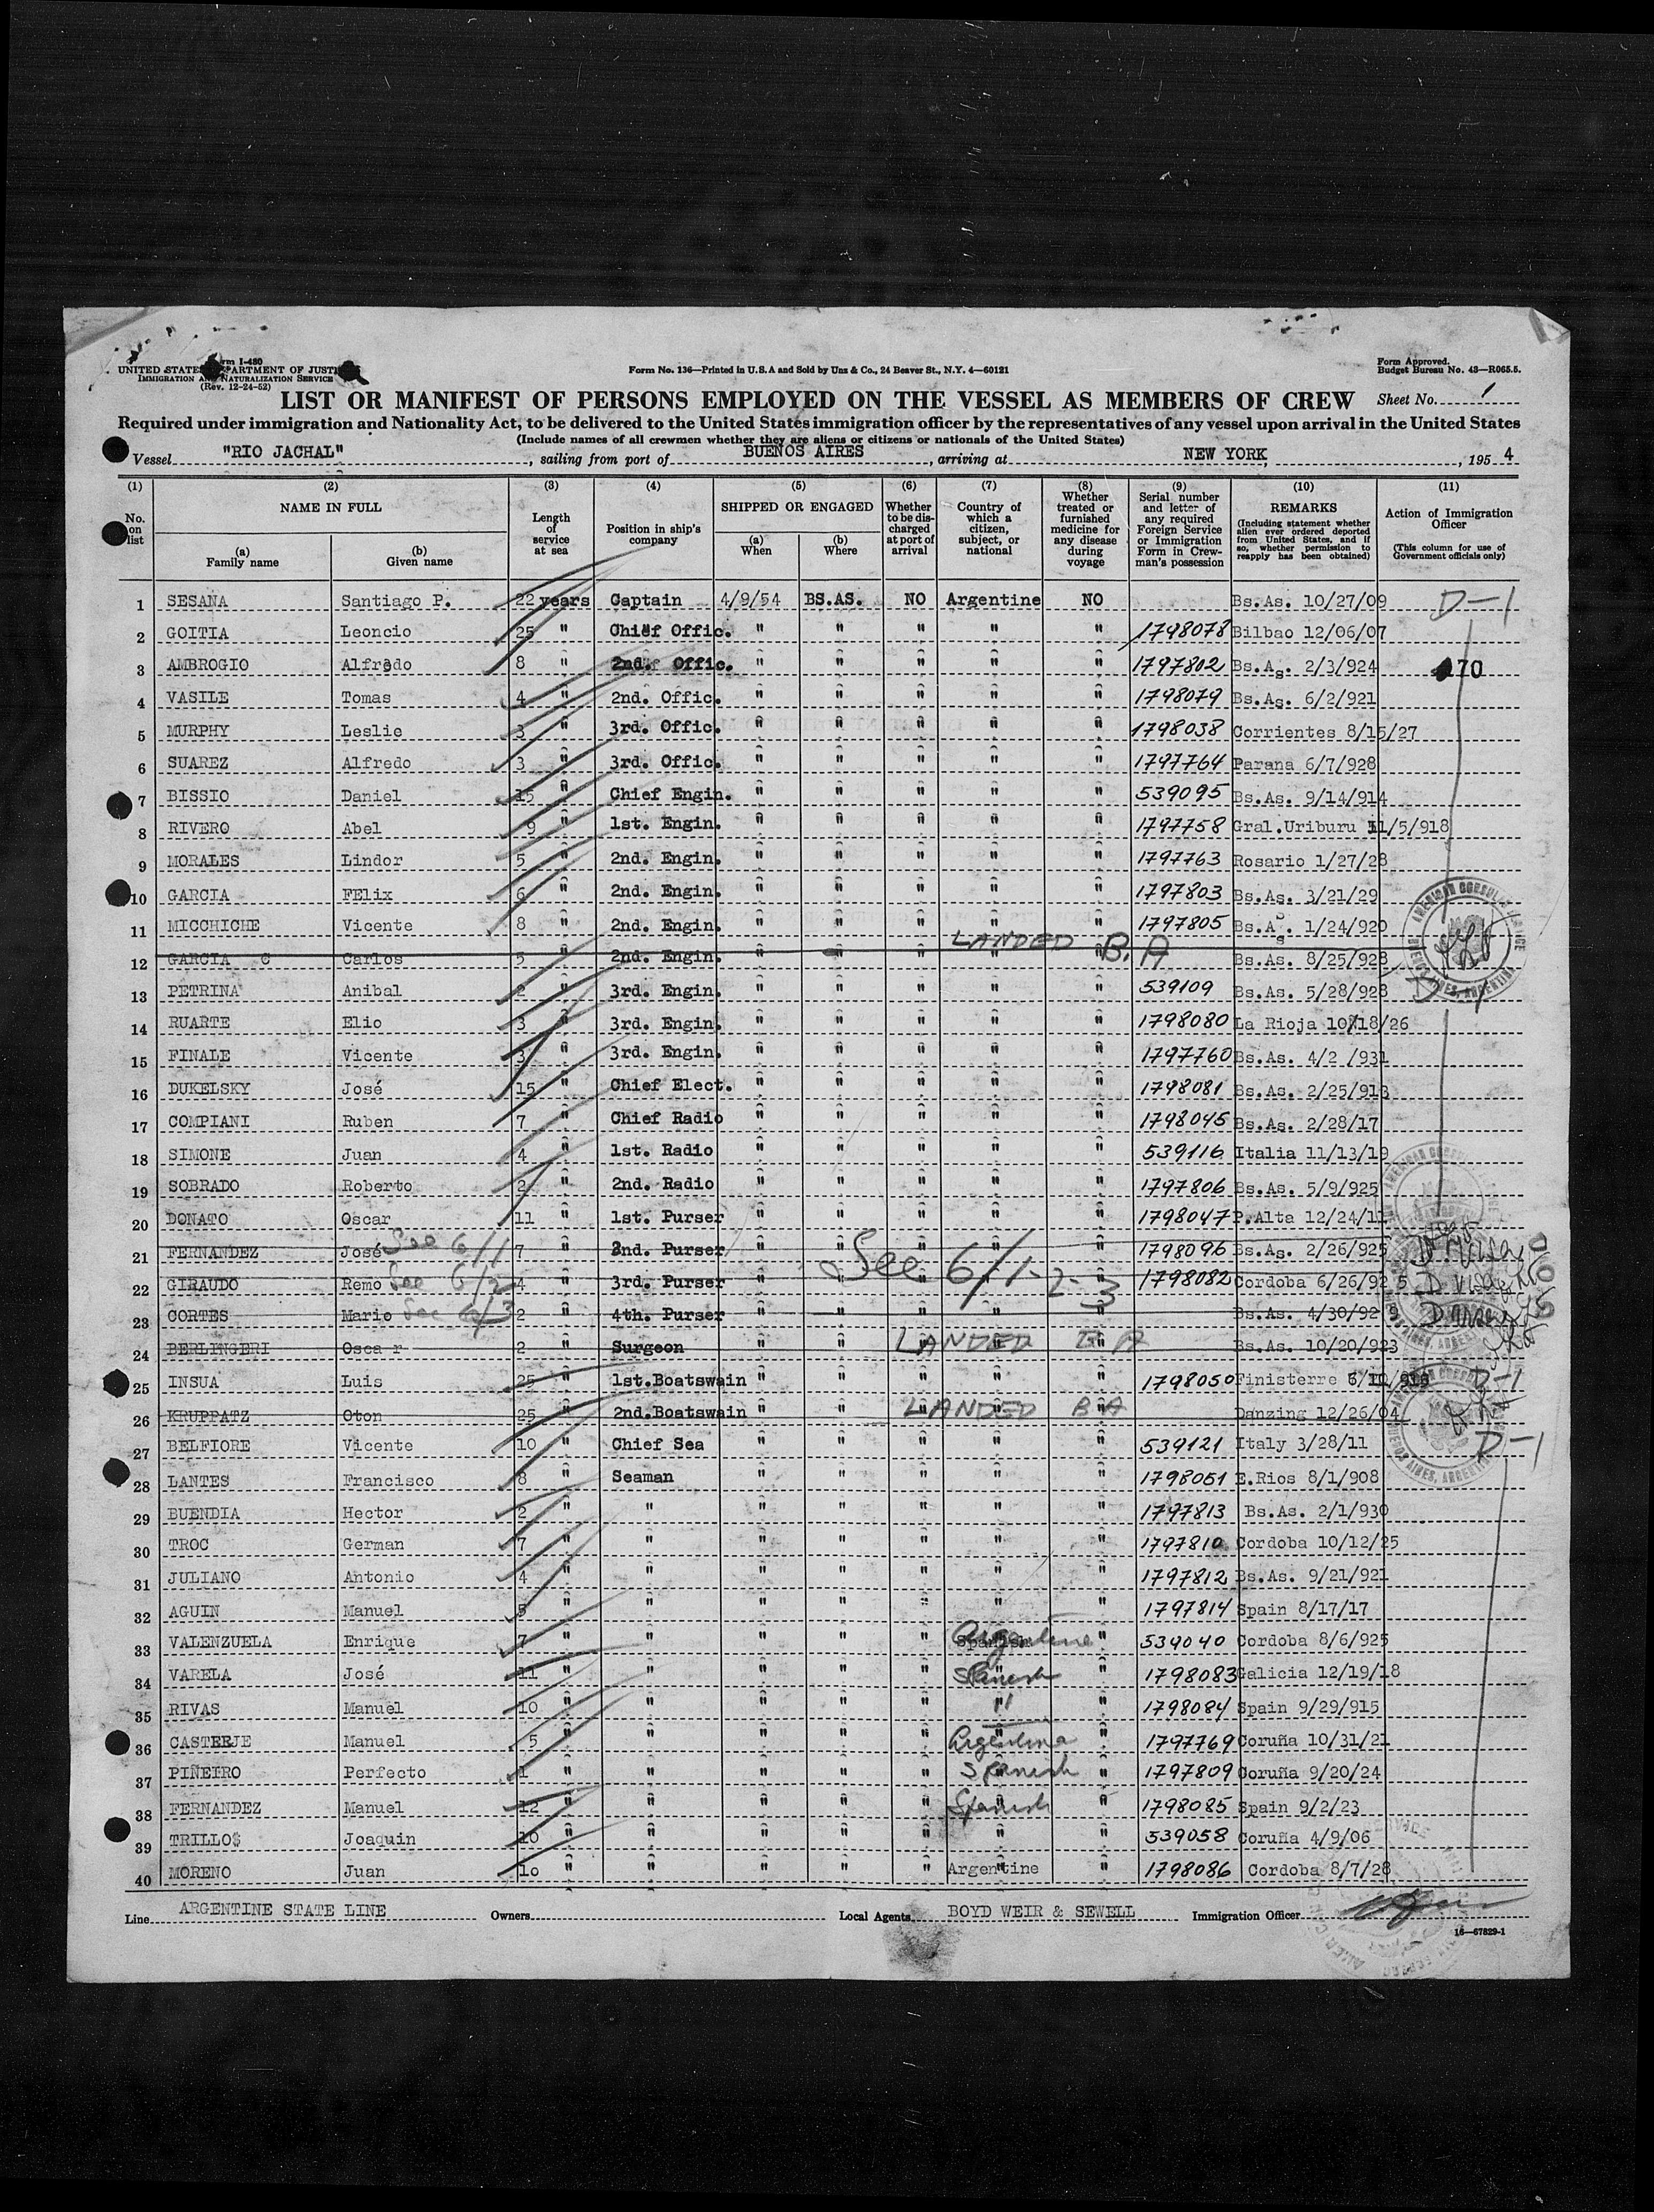 Form I-480
UNITED STATES DEPARTMENT OF JUSTICE
IMMIGRATION AND NATURALIZATION SERVICE
(Rev. 12-24-52)
Form No. 136—Printed in U.S.A and Sold by Unz & Co., 24 Beaver St., N.Y. 4—60121
Form Approved.
Budget Bureau No. 43—R065.5.
LIST OR MANIFEST OF PERSONS EMPLOYED ON THE VESSEL AS MEMBERS OF CREW Sheet No. 1
Required under immigration and Nationality Act, to be delivered to the United States immigration officer by the representatives of any vessel upon arrival in the United States
(Include names of all crewmen whether they are aliens or citizens or nationals of the United States)
Vessel "RIO JACHAL", sailing from port of BUENOS AIRES, arriving at NEW YORK, , 195 4
(1) No. on list
(2) NAME IN FULL (a) Family name (b) Given name
(3) Length of service at sea
(4) Position in ship's company
(5) SHIPPED OR ENGAGED (a) When (b) Where
(6) Whether to be discharged at port of arrival
(7) Country of which a citizen, subject, or national
(8) Whether treated or furnished medicine for any disease during voyage
(9) Serial number and letter of any required Foreign Service or Immigration Form in Crewman's possession
(10) REMARKS (Including statement whether alien ever ordered deported from United States, and if so, whether permission to reapply has been obtained)
(11) Action of Immigration Officer (This column for use of Government officials only)
1 SESANA Santiago P. 22 years Captain 4/9/54 BS.AS. NO Argentine NO Bs.As. 10/27/09 D-1
2 GOITIA Leoncio 25 " Chief Offic. " " " " " 1798078 Bilbao 12/06/07
3 AMBROGIO Alfredo 8 " 2nd. Offic. " " " " " 1797802 Bs.As. 2/3/924 70
4 VASILE Tomas 4 " 2nd. Offic. " " " " " 1798079 Bs.As. 6/2/921
5 MURPHY Leslie 3 " 3rd. Offic. " " " " " 1798038 Corrientes 8/15/27
6 SUAREZ Alfredo 3 " 3rd. Offic. " " " " " 1797764 Parana 6/7/928
7 BISSIO Daniel 15 " Chief Engin. " " " " " 539095 Bs.As. 9/14/914
8 RIVERO Abel 9 " 1st. Engin. " " " " " 1797758 Gral.Uriburu 11/5/918
9 MORALES Lindor 5 " 2nd. Engin. " " " " " 1797763 Rosario 1/27/28
10 GARCIA FElix 6 " 2nd. Engin. " " " " " 1797803 Bs.As. 3/21/29
11 MICCHICHE Vicente 8 " 2nd. Engin. " " " " " 1797805 Bs.As. 1/24/920
12 GARCIA C Carlos 5 " 2nd. Engin. " " " " " LANDED B.A Bs.As. 8/25/928
13 PETRINA Anibal 2 " 3rd. Engin. " " " " " 539109 Bs.As. 5/28/928 D-1
14 RUARTE Elio 3 " 3rd. Engin. " " " " " 1798080 La Rioja 10/18/26
15 FINALE Vicente 3 " 3rd. Engin. " " " " " 1797760 Bs.As. 4/2 /931
16 DUKELSKY José 15 " Chief Elect. " " " " " 1798081 Bs.As. 2/25/913
17 COMPIANI Ruben 7 " Chief Radio " " " " " 1798045 Bs.As. 2/28/17
18 SIMONE Juan 4 " 1st. Radio " " " " " 539116 Italia 11/13/19
19 SOBRADO Roberto 2 " 2nd. Radio " " " " " 1797806 Bs.As. 5/9/925
20 DONATO Oscar 11 " 1st. Purser " " " " " 1798047 P.Alta 12/24/11
21 FERNANDEZ José See 6/1 7 " 2nd. Purser " " " " " 1798096 Bs.As. 2/26/925
22 GIRAUDO Remo See 6/2 4 " 3rd. Purser " See 6/1-2-3 1798082 Cordoba 6/26/92 5
23 CORTES Mario See 6/3 2 " 4th. Purser " " " " " Bs.As. 4/30/92 9
24 BERLINGERI Osca r 2 " Surgeon " " " " " LANDED B A Bs.As. 10/20/923
25 INSUA Luis 25 " 1st.Boatswain " " " " " 1798050 Finisterre D-1
26 KRUPPATZ Oton 25 " 2nd.Boatswain " " " " " LANDED B A Danzing 12/26/04
27 BELFIORE Vicente 10 " Chief Sea " " " " " 539121 Italy 3/28/11 D-1
28 LANTES Francisco 8 " Seaman " " " " " 1798051 E.Rios 8/1/908
29 BUENDIA Hector 2 " " " " " " " 1797813 Bs.As. 2/1/930
30 TROC German 7 " " " " " " " 1797810 Cordoba 10/12/25
31 JULIANO Antonio 4 " " " " " " " 1797812 Bs.As. 9/21/921
32 AGUIN Manuel 5 " " " " " " " 1797814 Spain 8/17/17
33 VALENZUELA Enrique 7 " " " " " Spanish Argentine " 539040 Cordoba 8/6/925
34 VARELA José 11 " " " " " " Spanish " 1798083 Galicia 12/19/18
35 RIVAS Manuel 10 " " " " " " " 1798084 Spain 9/29/915
36 CASTEEJE Manuel 5 " " " " " " Argentina " 1797769 Coruña 10/31/21
37 PIÑEIRO Perfecto 1 " " " " " " Spanish " 1797809 Coruña 9/20/24
38 FERNANDEZ Manuel 12 " " " " " " Spanish " 1798085 Spain 9/2/23
39 TRILLOS Joaquin 10 " " " " " " " 539058 Coruña 4/9/06
40 MORENO Juan 10 " " " " " Argentine " 1798086 Cordoba 8/7/28
Line ARGENTINE STATE LINE Owners Local Agents BOYD WEIR & SEWELL Immigration Officer
16—67829-1